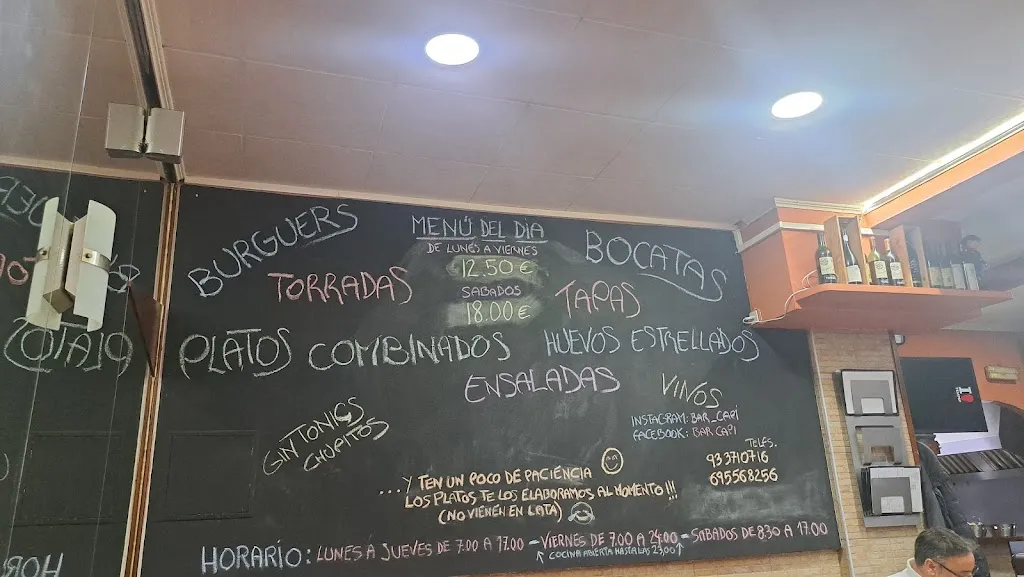 BURGUERS
MENÚ DEL DIA
DE LUNES A VIERNES
12.50 €
SABADOS
18.00 €
BOCATAS
TORRADAS
TAPAS
PLATOS COMBINADOS
HUEVOS ESTRELLADOS
ENSALADAS
VINOS
GINTONICS
CHUPITOS
INSTAGRAM: BAR_CAPI
FACEBOOK: BAR CAPI
TELFS.
933710716
695568256
...Y TEN UN POCO DE PACIÈNCIA
LOS PLATOS TE LOS ELABORAMOS AL MOMENTO!!!
(NO VIENEN EN LATA)
HORARIO: LUNES A JUEVES DE 7.00 A 17.00 - VIERNES DE 7.00 A 24:00 - SABADOS DE 8:30 A 17.00
COCINA ABIERTA HASTA LAS 23,00